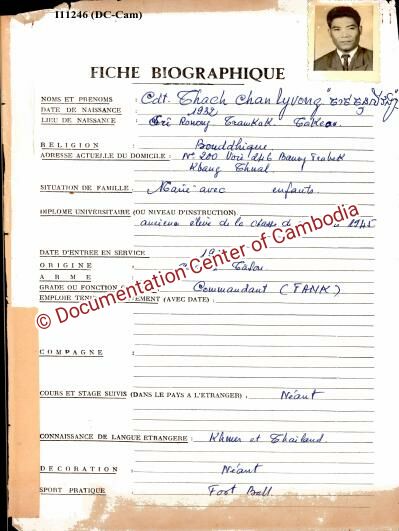 111246 (DC-Cam)
FICHE BIOGRAPHIQUE
NOMS ET PRENOMS : Cdt. Thach Chanlyvong
DATE DE NAISSANCE : 1932
LIEU DE NAISSANCE : Tramkak Takeo
RELIGION : Bouddhique
ADRESSE ACTUELLE DU DOMICILE : N° 200 Voie 246
Kbang Thual
SITUATION DE FAMILLE : Marié avec enfants
DIPLOME UNIVERSITAIRE (OU NIVEAU D'INSTRUCTION)
ancien élève de la classe d 1945
DATE D'ENTREE EN SERVICE
ORIGINE
ARME
GRADE OU FONCTION Commandant (FANK)
EMPLOIE (AVEC DATE) :
© Documentation Center of Cambodia
COMPAGNE :
COURS ET STAGE SUIVIS (DANS LE PAYS A L'ETRANGER) : Néant
CONNAISSANCE DE LANGUE ETRANGERE : Khmer et Thailand
DECORATION : Néant
SPORT PRATIQUE : Foot Ball